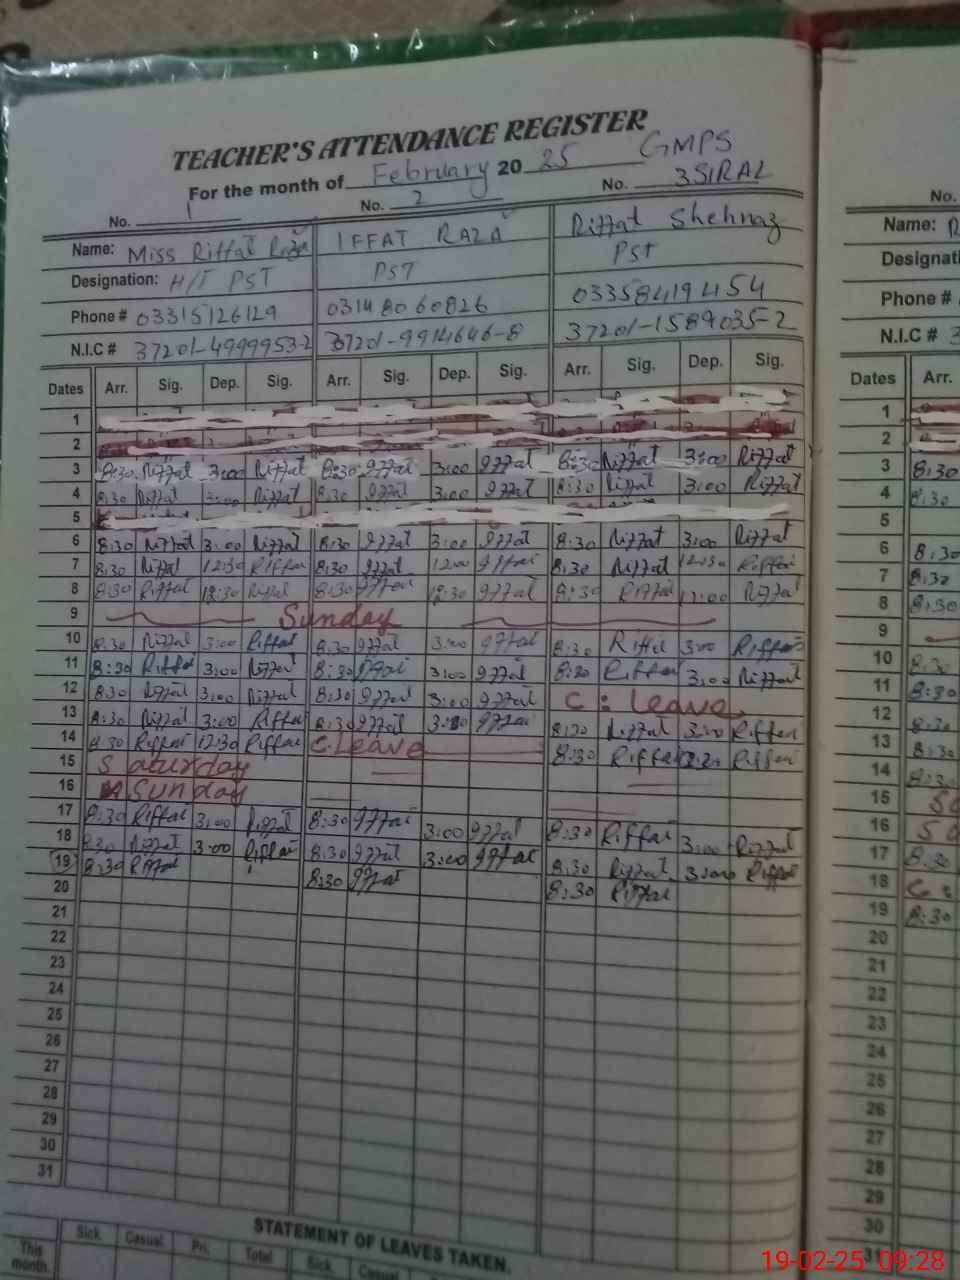 TEACHER'S ATTENDANCE REGISTER
For the month of February 2025 GMPS
No. 1 No. 2 No. 3 SIRAL
Name: Miss Riffat IFFAT RAZA Riffat Shehnaz
Designation: H/T PST PST PST
Phone # 03315126129 03148060826 03358419454
N.I.C # 37201-4999953-2 37201-9914646-8 37201-1589035-2
Dates Arr. Sig. Dep. Sig. Arr. Sig. Dep. Sig. Arr. Sig. Dep. Sig.
1
2
3 8:30 Riffat 3:00 Riffat 8:30 Iffat 3:00 Iffat 8:30 Riffat 3:00 Riffat
4 8:30 Riffat 3:00 Riffat 8:30 Iffat 3:00 Iffat 8:30 Riffat 3:00 Riffat
5
6 8:30 Riffat 3:00 Riffat 8:30 Iffat 3:00 Iffat 8:30 Riffat 3:00 Riffat
7 8:30 Riffat 12:30 Riffat 8:30 Iffat Iffat 8:30 Riffat 12:30 Riffat
8 8:30 Riffat 12:30 Riffat 8:30 Iffat 12:30 Iffat 8:30 Riffat 12:00 Riffat
9 Sunday
10 8:30 Riffat 3:00 Riffat 8:30 Iffat 3:00 Iffat 8:30 Riffat 3:00 Riffat
11 8:30 Riffat 3:00 Riffat 8:30 Iffat 3:00 Iffat 8:30 Riffat 3:00 Riffat
12 8:30 Riffat 3:00 Riffat 8:30 Iffat 3:00 Iffat C: leave
13 8:30 Riffat 3:00 Riffat 8:30 Iffat 3:00 Iffat 8:30 Riffat 3:00 Riffat
14 8:30 Riffat 12:30 Riffat C. Leave 8:30 Riffat Riffat
15 Saturday
16 Sunday
17 8:30 Riffat 3:00 Riffat 8:30 Iffat 3:00 Iffat 8:30 Riffat 3:00 Riffat
18 8:30 Riffat 3:00 Riffat 8:30 Iffat 3:00 Iffat 8:30 Riffat 3:00 Riffat
19 8:30 Riffat 8:30 Iffat 8:30 Riffat
20
21
22
23
24
25
26
27
28
29
30
31
STATEMENT OF LEAVES TAKEN.
Sick Casual Pri. Total Sick Casual
This month.
No.
Name:
Phone #
N.I.C #
Dates Arr.
1
2
3 8:30
4 8:30
5
6 8:30
7 8:30
8 8:30
9
10 8:30
11 8:30
12 8:30
13 8:30
14 8:30
15
16
17 8:30
18
19 8:30
20
21
22
23
24
25
26
27
28
29
30
31
19-02-25 09:28